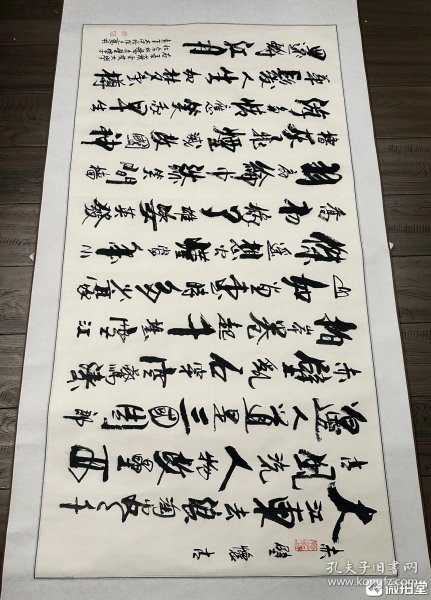 赤壁懷古
大江東去浪淘盡千
古風流人物故壘西
邊人道是三國周郎
赤壁亂石穿空驚濤
拍岸捲起千堆雪江
山如畫一時多少豪
傑遙想公瑾當年小
喬初嫁了雄姿英發
羽扇綸巾談笑間檣
櫓灰飛煙滅故國神
遊多情應笑我早生
華髮人生如夢一樽
還酹江月
孔夫子旧书网
www.kongfz.com
微拍堂